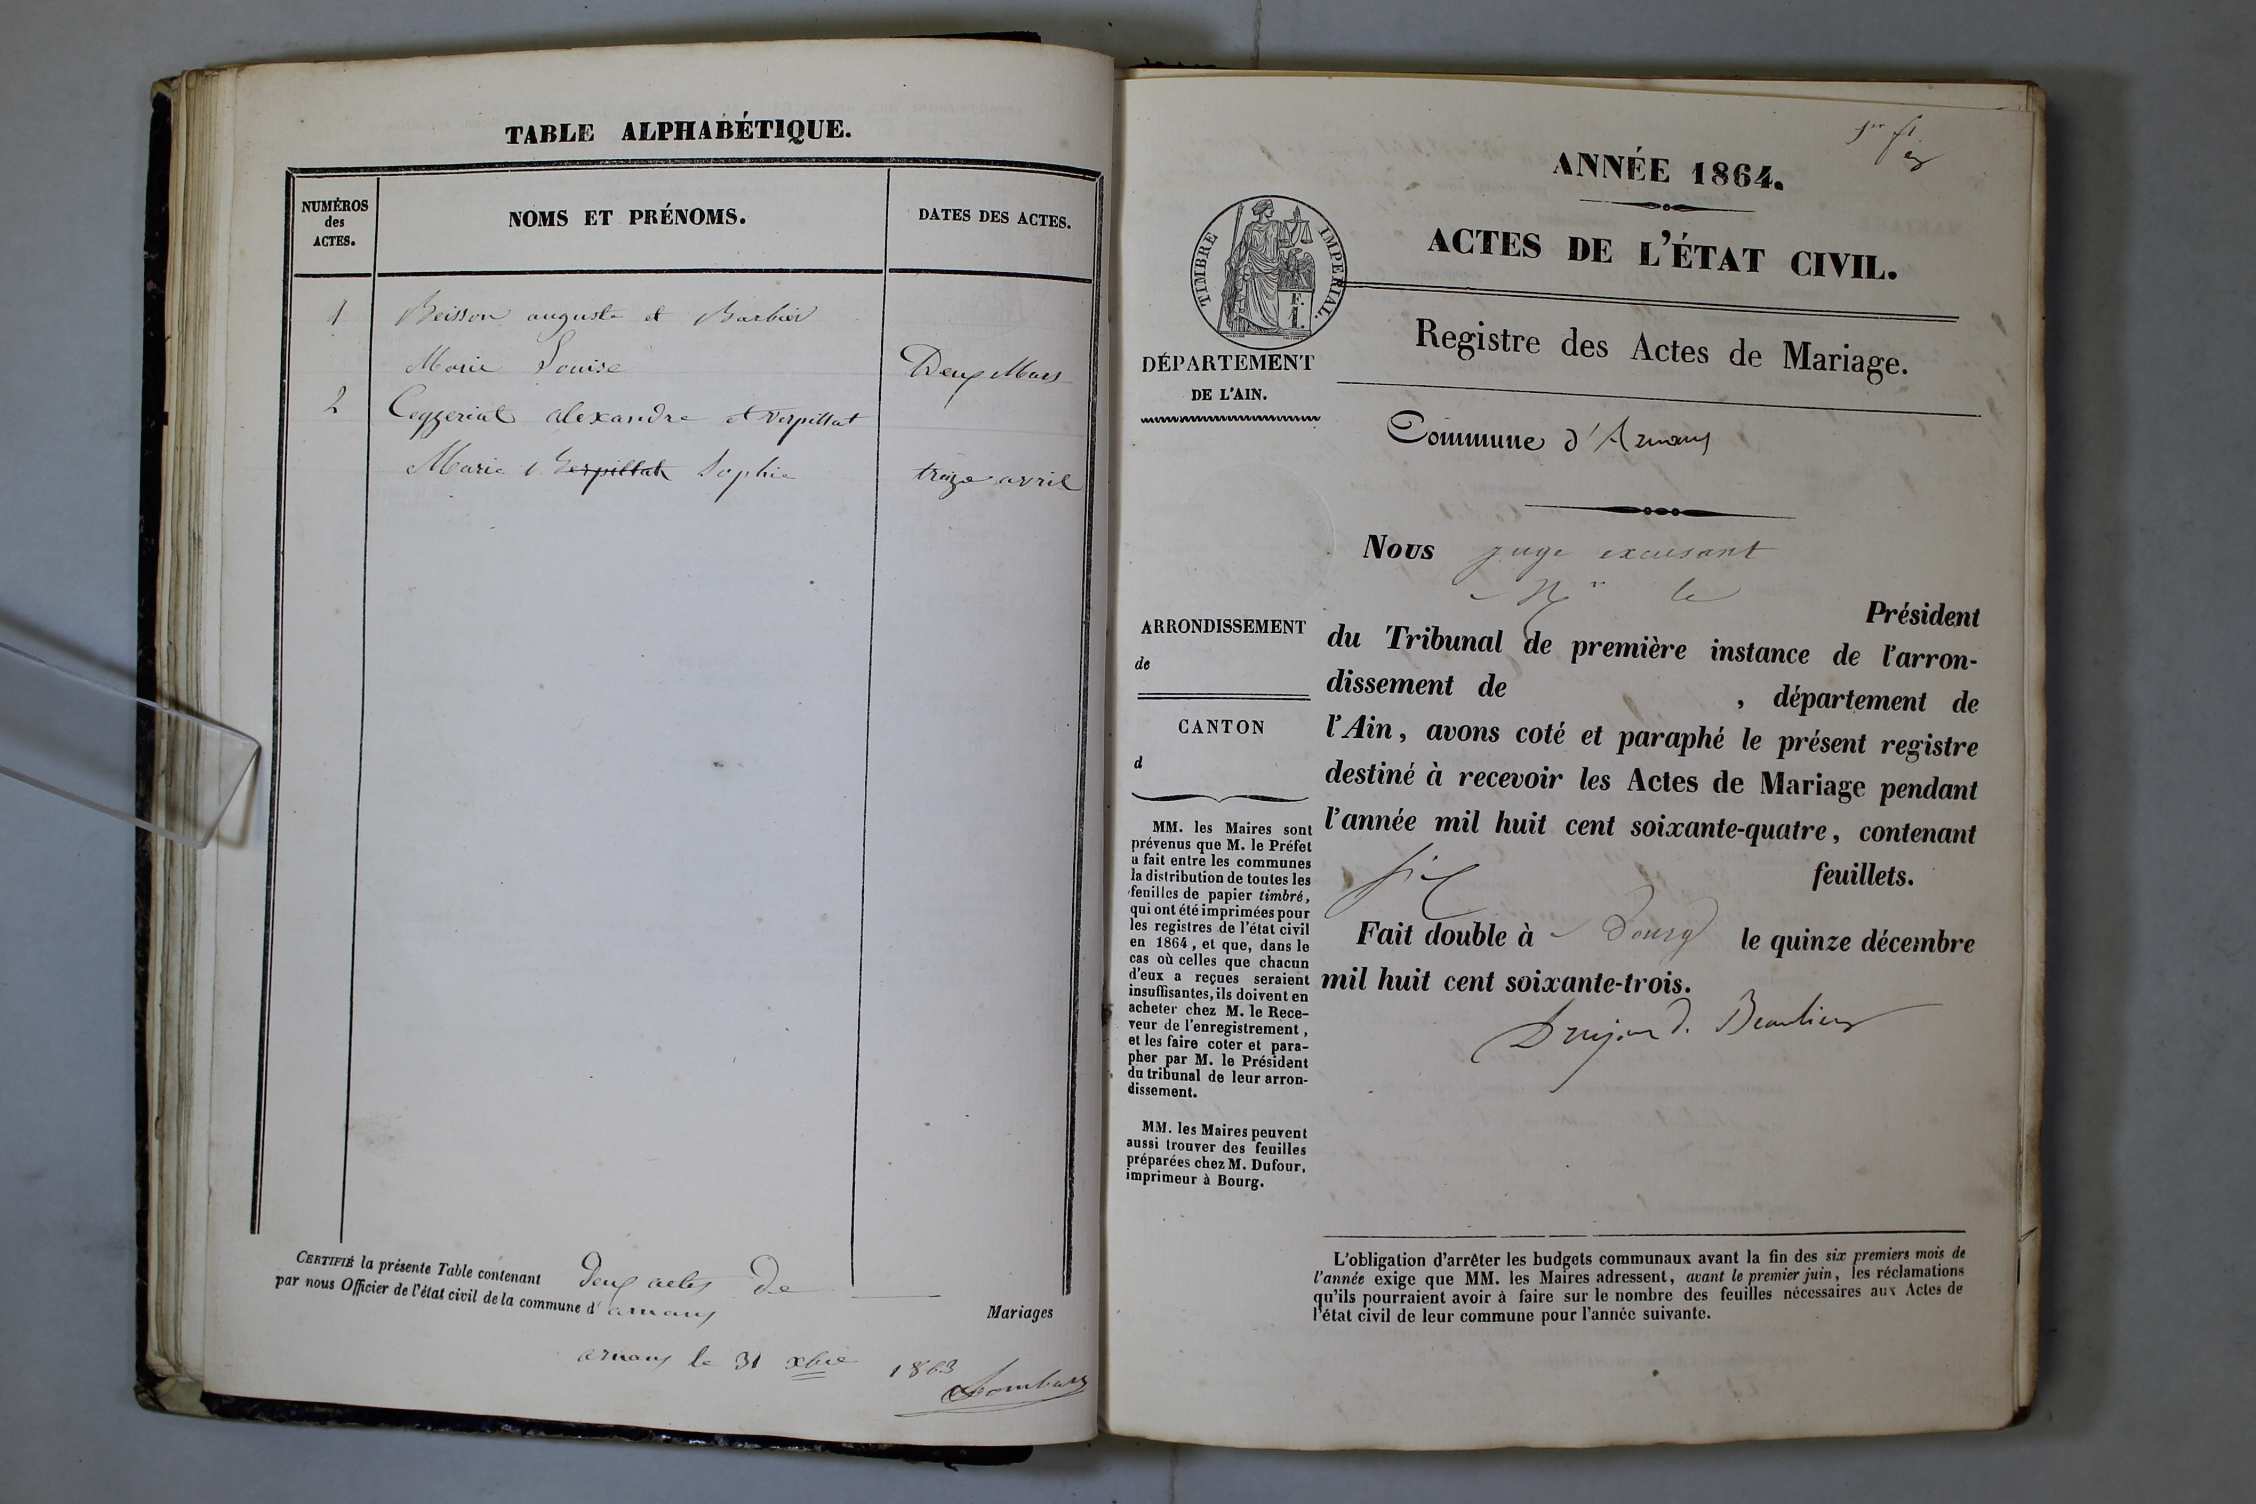 TABLE ALPHABÉTIQUE.
NUMÉROS
des
ACTES.
NOMS ET PRÉNOMS.
DATES DES ACTES.
1 Beisson auguste et Barbier
Marie Louise Deux Mars
2 Ceyzeriat alexandre et Verpillat
Marie Verpillat Sophie treize avril
CERTIFIÉ la présente Table contenant deux actes de
Mariages
par nous Officier de l'état civil de la commune d'arnans
arnans le 31 xbre 1863
1er f
ANNÉE 1864.
ACTES DE L'ÉTAT CIVIL.
Registre des Actes de Mariage.
Commune d'Arnans
TIMBRE IMPERIAL.
F.
1.
DÉPARTEMENT
DE L'AIN.
ARRONDISSEMENT
de
CANTON
d
MM. les Maires sont
prévenus que M. le Préfet
a fait entre les communes
la distribution de toutes les
feuilles de papier timbré,
qui ont été imprimées pour
les registres de l'état civil
en 1864, et que, dans le
cas où celles que chacun
d'eux a reçues seraient
insuffisantes, ils doivent en
acheter chez M. le Rece-
veur de l'enregistrement,
et les faire coter et para-
pher par M. le Président
du tribunal de leur arron-
dissement.
MM. les Maires peuvent
aussi trouver des feuilles
préparées chez M. Dufour,
imprimeur à Bourg.
Nous juge
le
Président
du Tribunal de première instance de l'arron-
dissement de , département de
l'Ain, avons coté et paraphé le présent registre
destiné à recevoir les Actes de Mariage pendant
l'année mil huit cent soixante-quatre, contenant
six feuillets.
Fait double à Bourg le quinze décembre
mil huit cent soixante-trois.
Drujon d. Beaulieu
L'obligation d'arrêter les budgets communaux avant la fin des six premiers mois de
l'année exige que MM. les Maires adressent, avant le premier juin, les réclamations
qu'ils pourraient avoir à faire sur le nombre des feuilles nécessaires aux Actes de
l'état civil de leur commune pour l'année suivante.